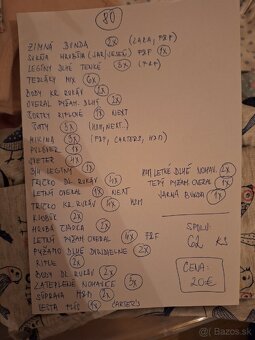 80
ZIMNÁ BUNDA 2x (ZARA, F&F)
SUKŇA HRUBŠIA (JAR/JESEŇ) F&F 1x
LEGÍNY DLHÉ TENKÉ 3x (F&F)
TEPLÁKY MIX 6x
BODY KR. RUKÁV 2x
OVERAL PYŽAM. DLHÝ 2x
ŠORTKY RIFĽOVÉ 1x NEXT
ŠATY 5x (H&M, NEXT..)
MIKINA 3x (F&F, CARTERS, H&M)
PULOVER 1x
SVETER 4x
3/4 LEGÍNY 1x
TRIČKO DL. RUKÁV 4x
LETNÝ OVERAL 1x NEXT
TRIČKO KR. RUKÁV 4x H&M
KLOBÚK 2x
HRUBÁ ČIAPKA 2x
LETNÝ PYŽAM. OVERAL 4x F&F
PYŽAMO DLHÉ DVOJDIELNE 2x
RIFLE 2x
BODY DL. RUKÁV 2x
ZATEPLENÉ NOHAVICE 3x
SÚPRAVA H&M 2x
VESTA PLYŠ 1x CARTERS
LETNÉ DLHÉ NOHAV. 2x
TEPL. PYŽAM. OVERAL 1x
JARNÁ BUNDA 1x
SPOLU:
62 KS
CENA:
20€
Bazos.sk